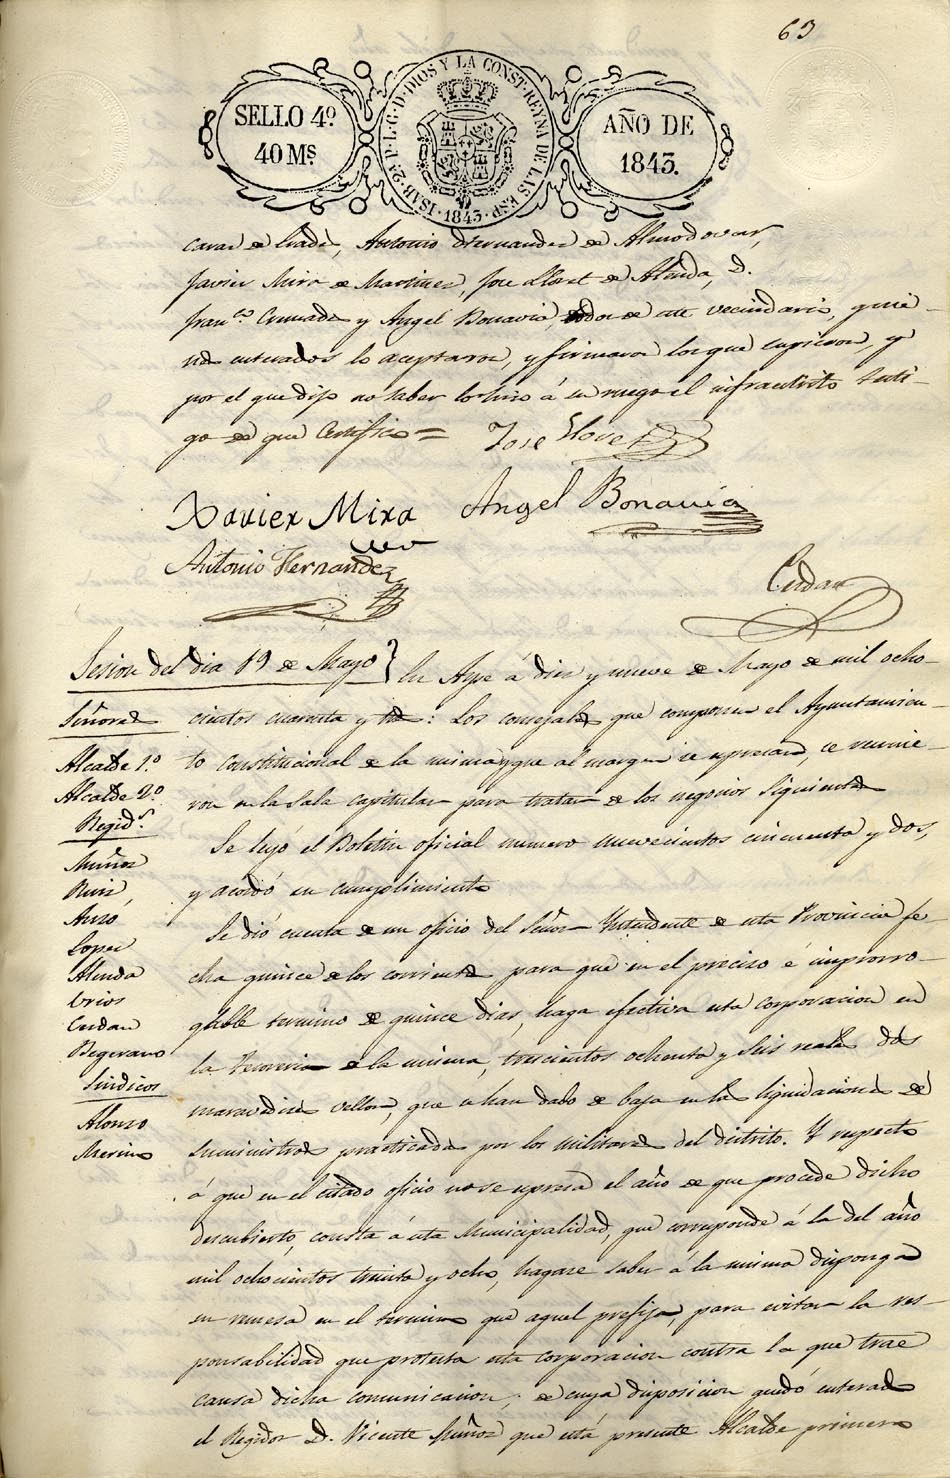 63
SELLO 4º
40 Mˢ
ISAB. 2ª P. L. G. D. DIOS Y LA CONST. REYNA DE LAS ESP.
1843
AÑO DE
1843.
Antonio Hernandez de Almodovar,
Javier Mira de Martinez, Jose Lloret de Alenda, D.
Franᶜᵒ y Angel Bonavia, todos de este vecindario, quie-
nes enterados lo aceptaron, y firmaron los que supieron, y
por el que dijo no saber lo hizo á su ruego el infraescrito testi-
go de que Certifico =
Jose Lloret
Xavier Mira
Angel Bonavia
Antonio Hernandez
Cerdan
Sesion del dia 19 de Mayo
En Aspe á diez y nueve de Mayo de mil ocho-
Señores
cientos cuarenta y tres: Los concejales que componen el Ayuntamien-
Alcalde 1.º
to Constitucional de la misma que al margen se espresan, se reunie-
Alcalde 2º
ron en la Sala capitular para tratar de los negocios siguientes
Regidˢ
Se leyó el Boletin oficial numero nuevecientos cincuenta y dos,
Muñoz
y acordó su cumplimiento
Ruiz
Se dió cuenta de un oficio del Señor Yntendente de esta Provincia fe-
Lopez
cha quince de los corrientes para que en el preciso e improrro-
Alenda
gable termino de quince dias, haga efectiva esta corporacion en
Urios
Cerdan
la Tesoreria de la misma, trescientos ochenta y seis reales dos
Sindicos
maravedises vellon, que se han dado de baja en las liquidaciones de
Alonso
Merino
suministros practicadas por los militares del distrito. Y respecto
á que en el citado oficio no se espresa el año de que procede dicho
descubierto, consta á esta Municipalidad, que corresponde á la del año
mil ochocientos treinta y ocho, hagase saber á la misma disponga
su remesa en el termino que aquel prefija, para evitar la res-
ponsabilidad que protesta esta corporacion contra la que trae
causa dicha comunicacion, de cuya disposicion quedó enterado
el Regidor D. Vicente Muñoz que está presente Alcalde primero